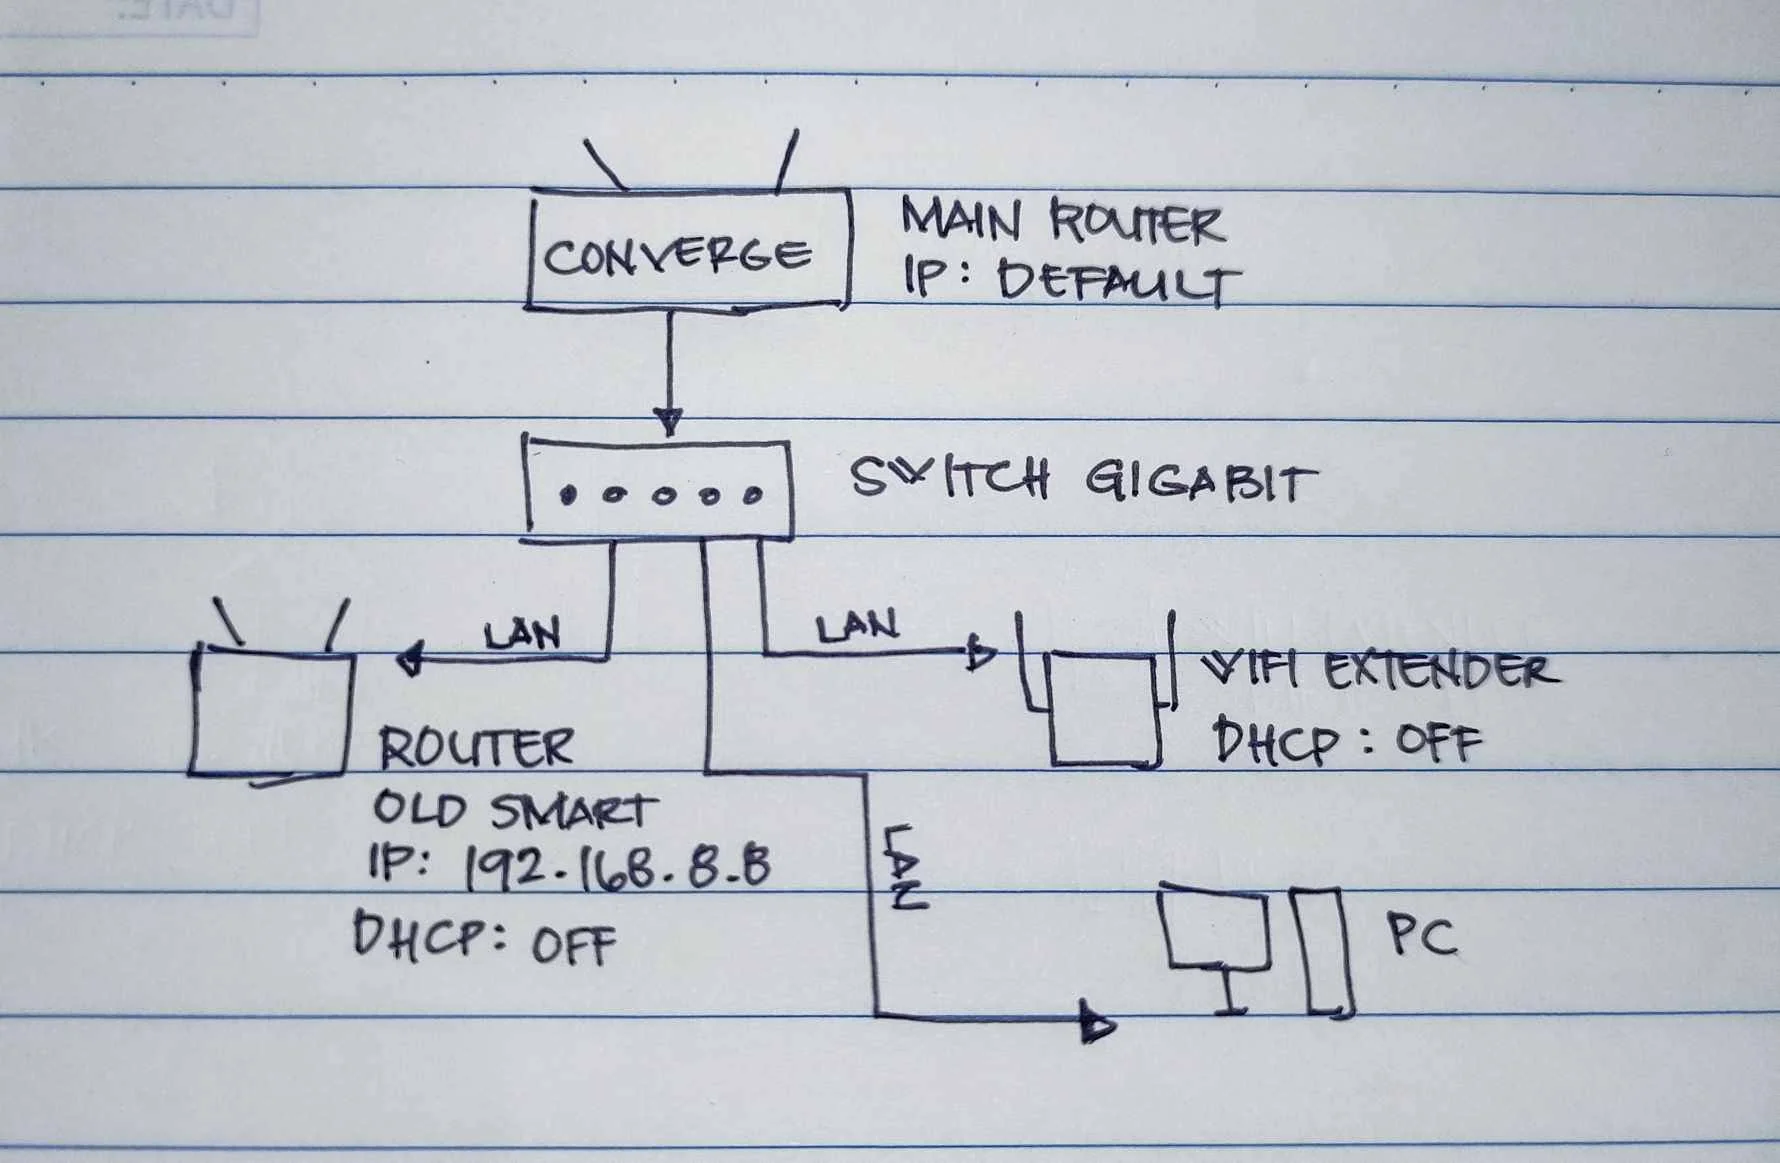 DATE:
CONVERGE
MAIN ROUTER
IP: DEFAULT
SWITCH GIGABIT
LAN
LAN
ROUTER
OLD SMART
IP: 192.168.8.8
DHCP: OFF
WIFI EXTENDER
DHCP: OFF
LAN
PC